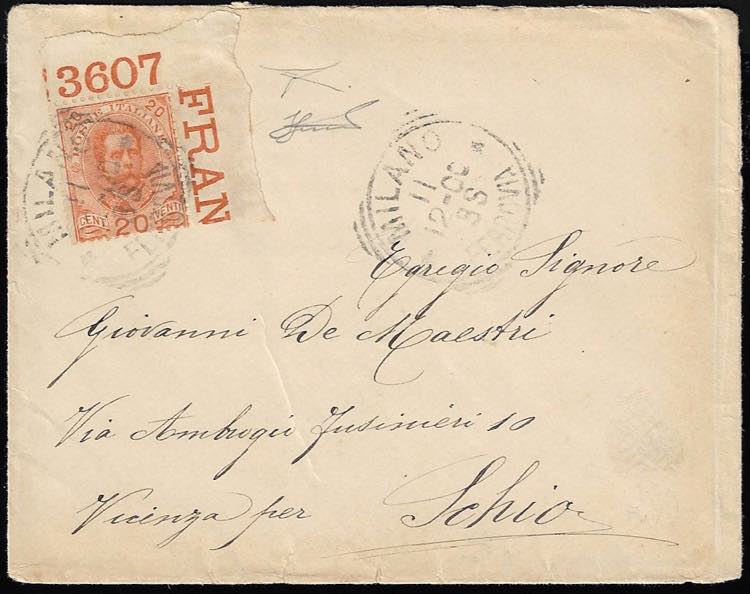 3607
FRAN
20 20
POSTE ITALIANE
CENT. VENTI
20
MILANO
11
12-00
9S
FERROVIA
Egregio Signore
Giovanni De Maestri
Via Ambrogio Fusinieri 10
Vicenza per Schio